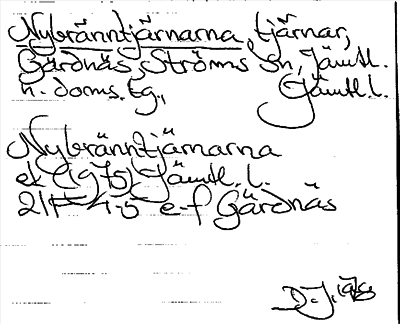 Nybränntjärnarna, tjärnar,
Gärdnäs, Ströms sn, Jämtl.
n. doms. tg., Jämtl l.
Nybränntjärnarna
ek (1975) Jämtl. l.
21F 4-5 e-f Gärdnäs
D.J. 1978